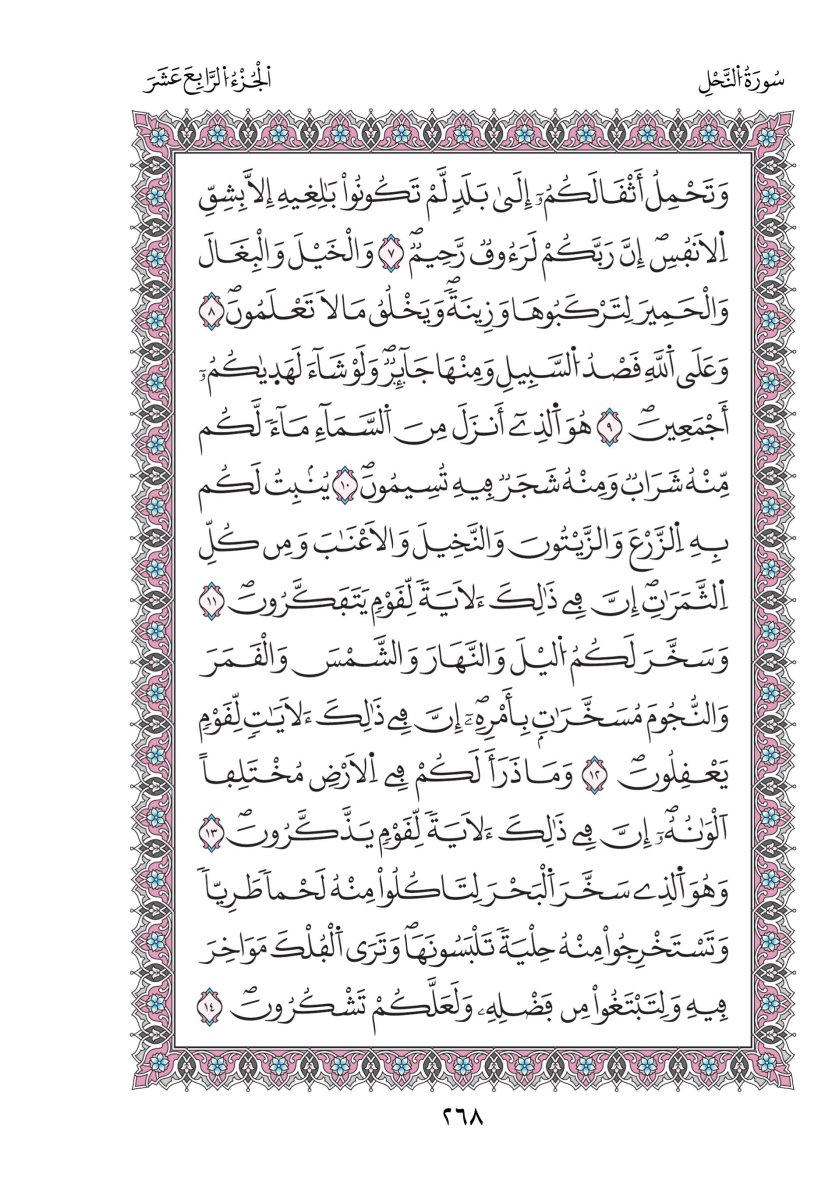 سُورَةُ النَّحْلِ
الْجُزْءُ الرَّابِعَ عَشَرَ
وَتَحْمِلُ أَثْفَالَكُمُۥٓ إِلَىٰ بَلَدٖ لَّمْ تَكُونُواْ بَٰلِغِيهِ إِلَّا بِشِقِّ
اِلَانفُسِۖ إِنَّ رَبَّكُمْ لَرَءُوفٞ رَّحِيمٞۖ ٧ وَالْخَيْلَ وَالْبِغَالَ
وَالْحَمِيرَ لِتَرْكَبُوهَا وَزِينَةٗۖ وَيَخْلُقُ مَا لَا تَعْلَمُونَۖ ٨
وَعَلَى اَللَّهِ قَصْدُ اُلسَّبِيلِ وَمِنْهَا جَآئِرٞۖ وَلَوْ شَآءَ لَهَدٜيٰكُمُۥٓ
أَجْمَعِينَۖ ٩ هُوَ اَلذِےٓ أَنزَلَ مِنَ اَلسَّمَآءِ مَآءٗ لَّكُم
مِّنْهُ شَرَابٞ وَمِنْهُ شَجَرٞ فِيهِ تُسِيمُونَۖ ١٠ يُنۢبِتُ لَكُم
بِهِ اِلزَّرْعَ وَالزَّيْتُونَ وَالنَّخِيلَ وَالَاعْنَٰبَ وَمِن كُلِّ
اِلثَّمَرَٰتِۖ إِنَّ فِے ذَٰلِكَ ءَلَايَةٗ لِّقَوْمٖ يَتَفَكَّرُونَۖ ١١
وَسَخَّرَ لَكُمُ اُليْلَ وَالنَّهَارَ وَالشَّمْسَ وَالْقَمَرَ
وَالنُّجُومَ مُسَخَّرَٰتِۢ بِأَمْرِهِۦٓۖ إِنَّ فِے ذَٰلِكَ ءَلَايَٰتٖ لِّقَوْمٖ
يَعْقِلُونَۖ ١٢ وَمَا ذَرَأَ لَكُمْ فِے اِلَارْضِ مُخْتَلِفاً
اَلْوَٰنُهُۥٓۖ إِنَّ فِے ذَٰلِكَ ءَلَايَةٗ لِّقَوْمٖ يَذَّكَّرُونَۖ ١٣
وَهُوَ اَلذِے سَخَّرَ اَلْبَحْرَ لِتَاكُلُواْ مِنْهُ لَحْماٗ طَرِيّاٗ
وَتَسْتَخْرِجُواْ مِنْهُ حِلْيَةٗ تَلْبَسُونَهَاۖ وَتَرَى اَلْفُلْكَ مَوَاخِرَ
فِيهِ وَلِتَبْتَغُواْ مِن فَضْلِهِۦ وَلَعَلَّكُمْ تَشْكُرُونَۖ ١٤
٢٦٨